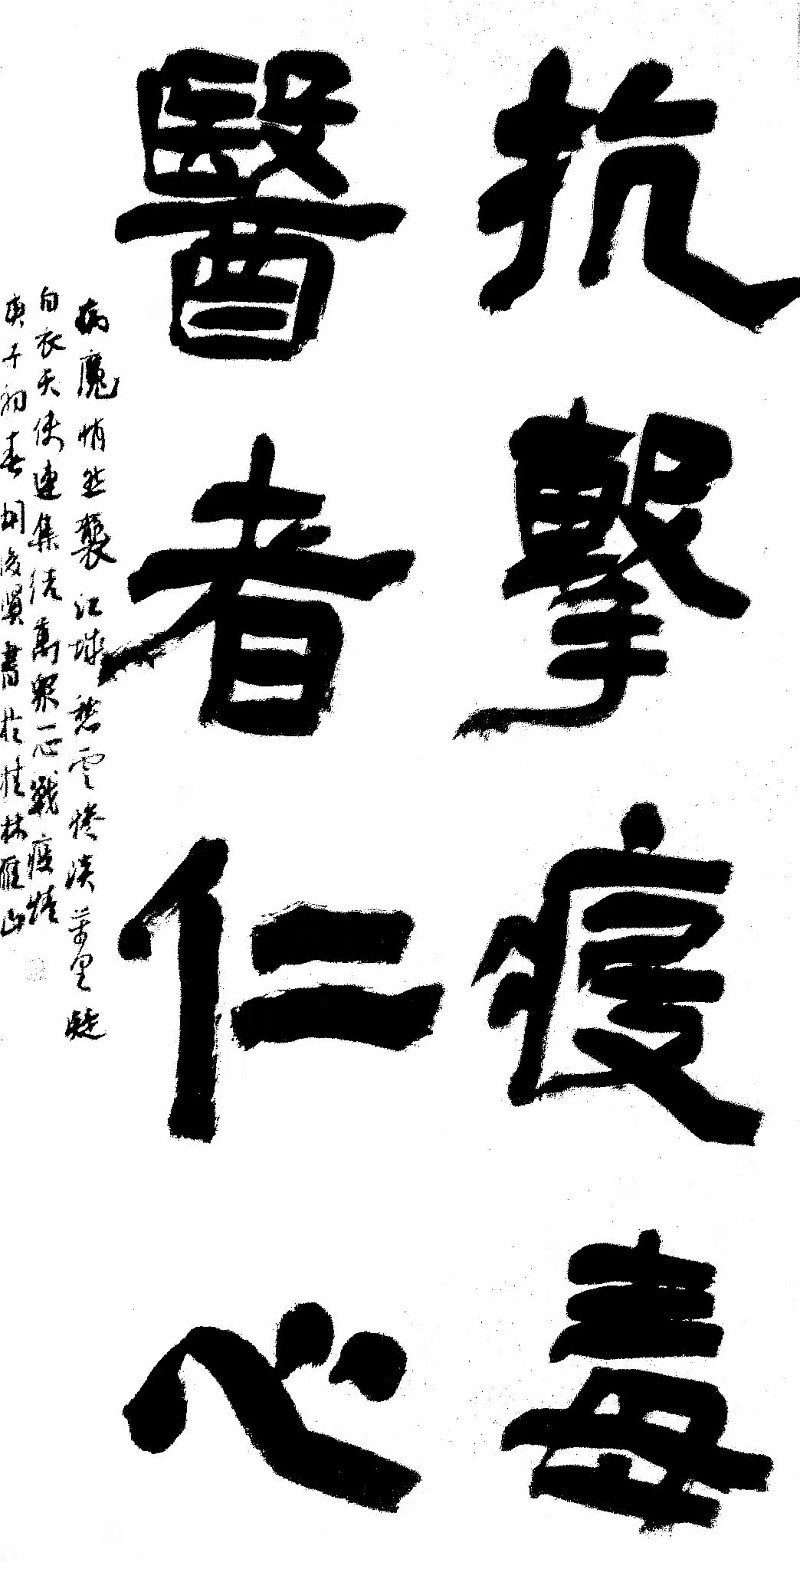 抗擊疫毒
醫者仁心
病魔悄然襲江城愁雲慘淡萬里凝
白衣天使速集結萬眾一心戰疫情
庚子初春胡俊賢書於桂林雁山